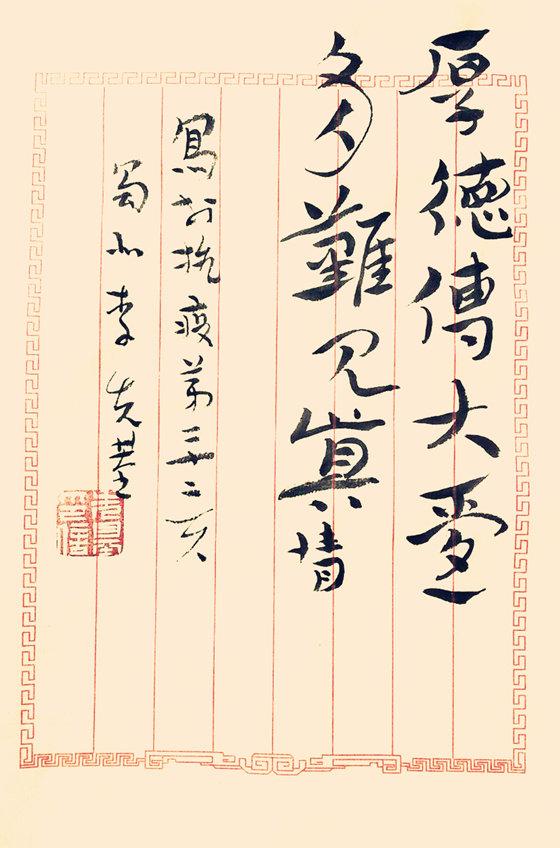 厚德傳大愛
多難見真情
寫於抗疫第三十二天
蜀北李先